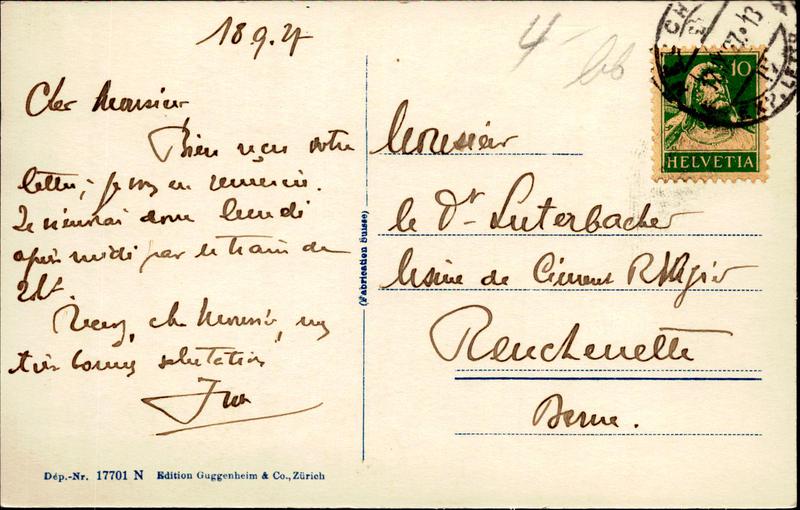 18.9.27
Cher Monsieur
Bien reçu votre
lettre; je vous en remercie.
Je viendrai donc lundi
après midi par le train de
Recevez, cher Monsieur, mes
très bonnes salutations
Monsieur
le Dr Luterbacher
Usine de Ciment
Reuchenette
Berne.
10
HELVETIA
4
(Fabrication Suisse)
Dép.-Nr. 17701 N Edition Guggenheim & Co., Zürich